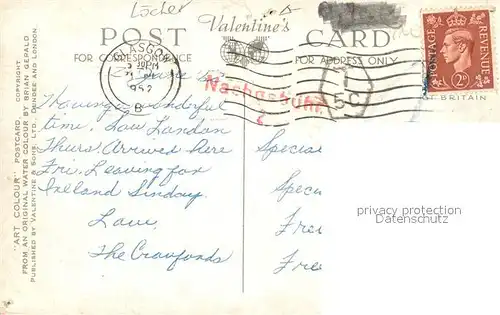 Locker
Valentine's
POST CARD
FOR CORRESPONDENCE
FOR ADDRESS ONLY
GLASGOW
1952
B
Nachgebühr
5C
POSTAGE REVENUE
2D
OF BRITAIN
Having a wonderful
time. Saw London
Thurs! Arrived here
Fri. Leaving for
Ireland Sunday.
Love,
The Crawfords
Special
Speci
Free
Free
privacy protection
Datenschutz
"ART COLOUR" POSTCARD. COPYRIGHT.
FROM AN ORIGINAL WATER COLOUR BY BRIAN GERALD
PUBLISHED BY VALENTINE & SONS, LTD., DUNDEE AND LONDON.